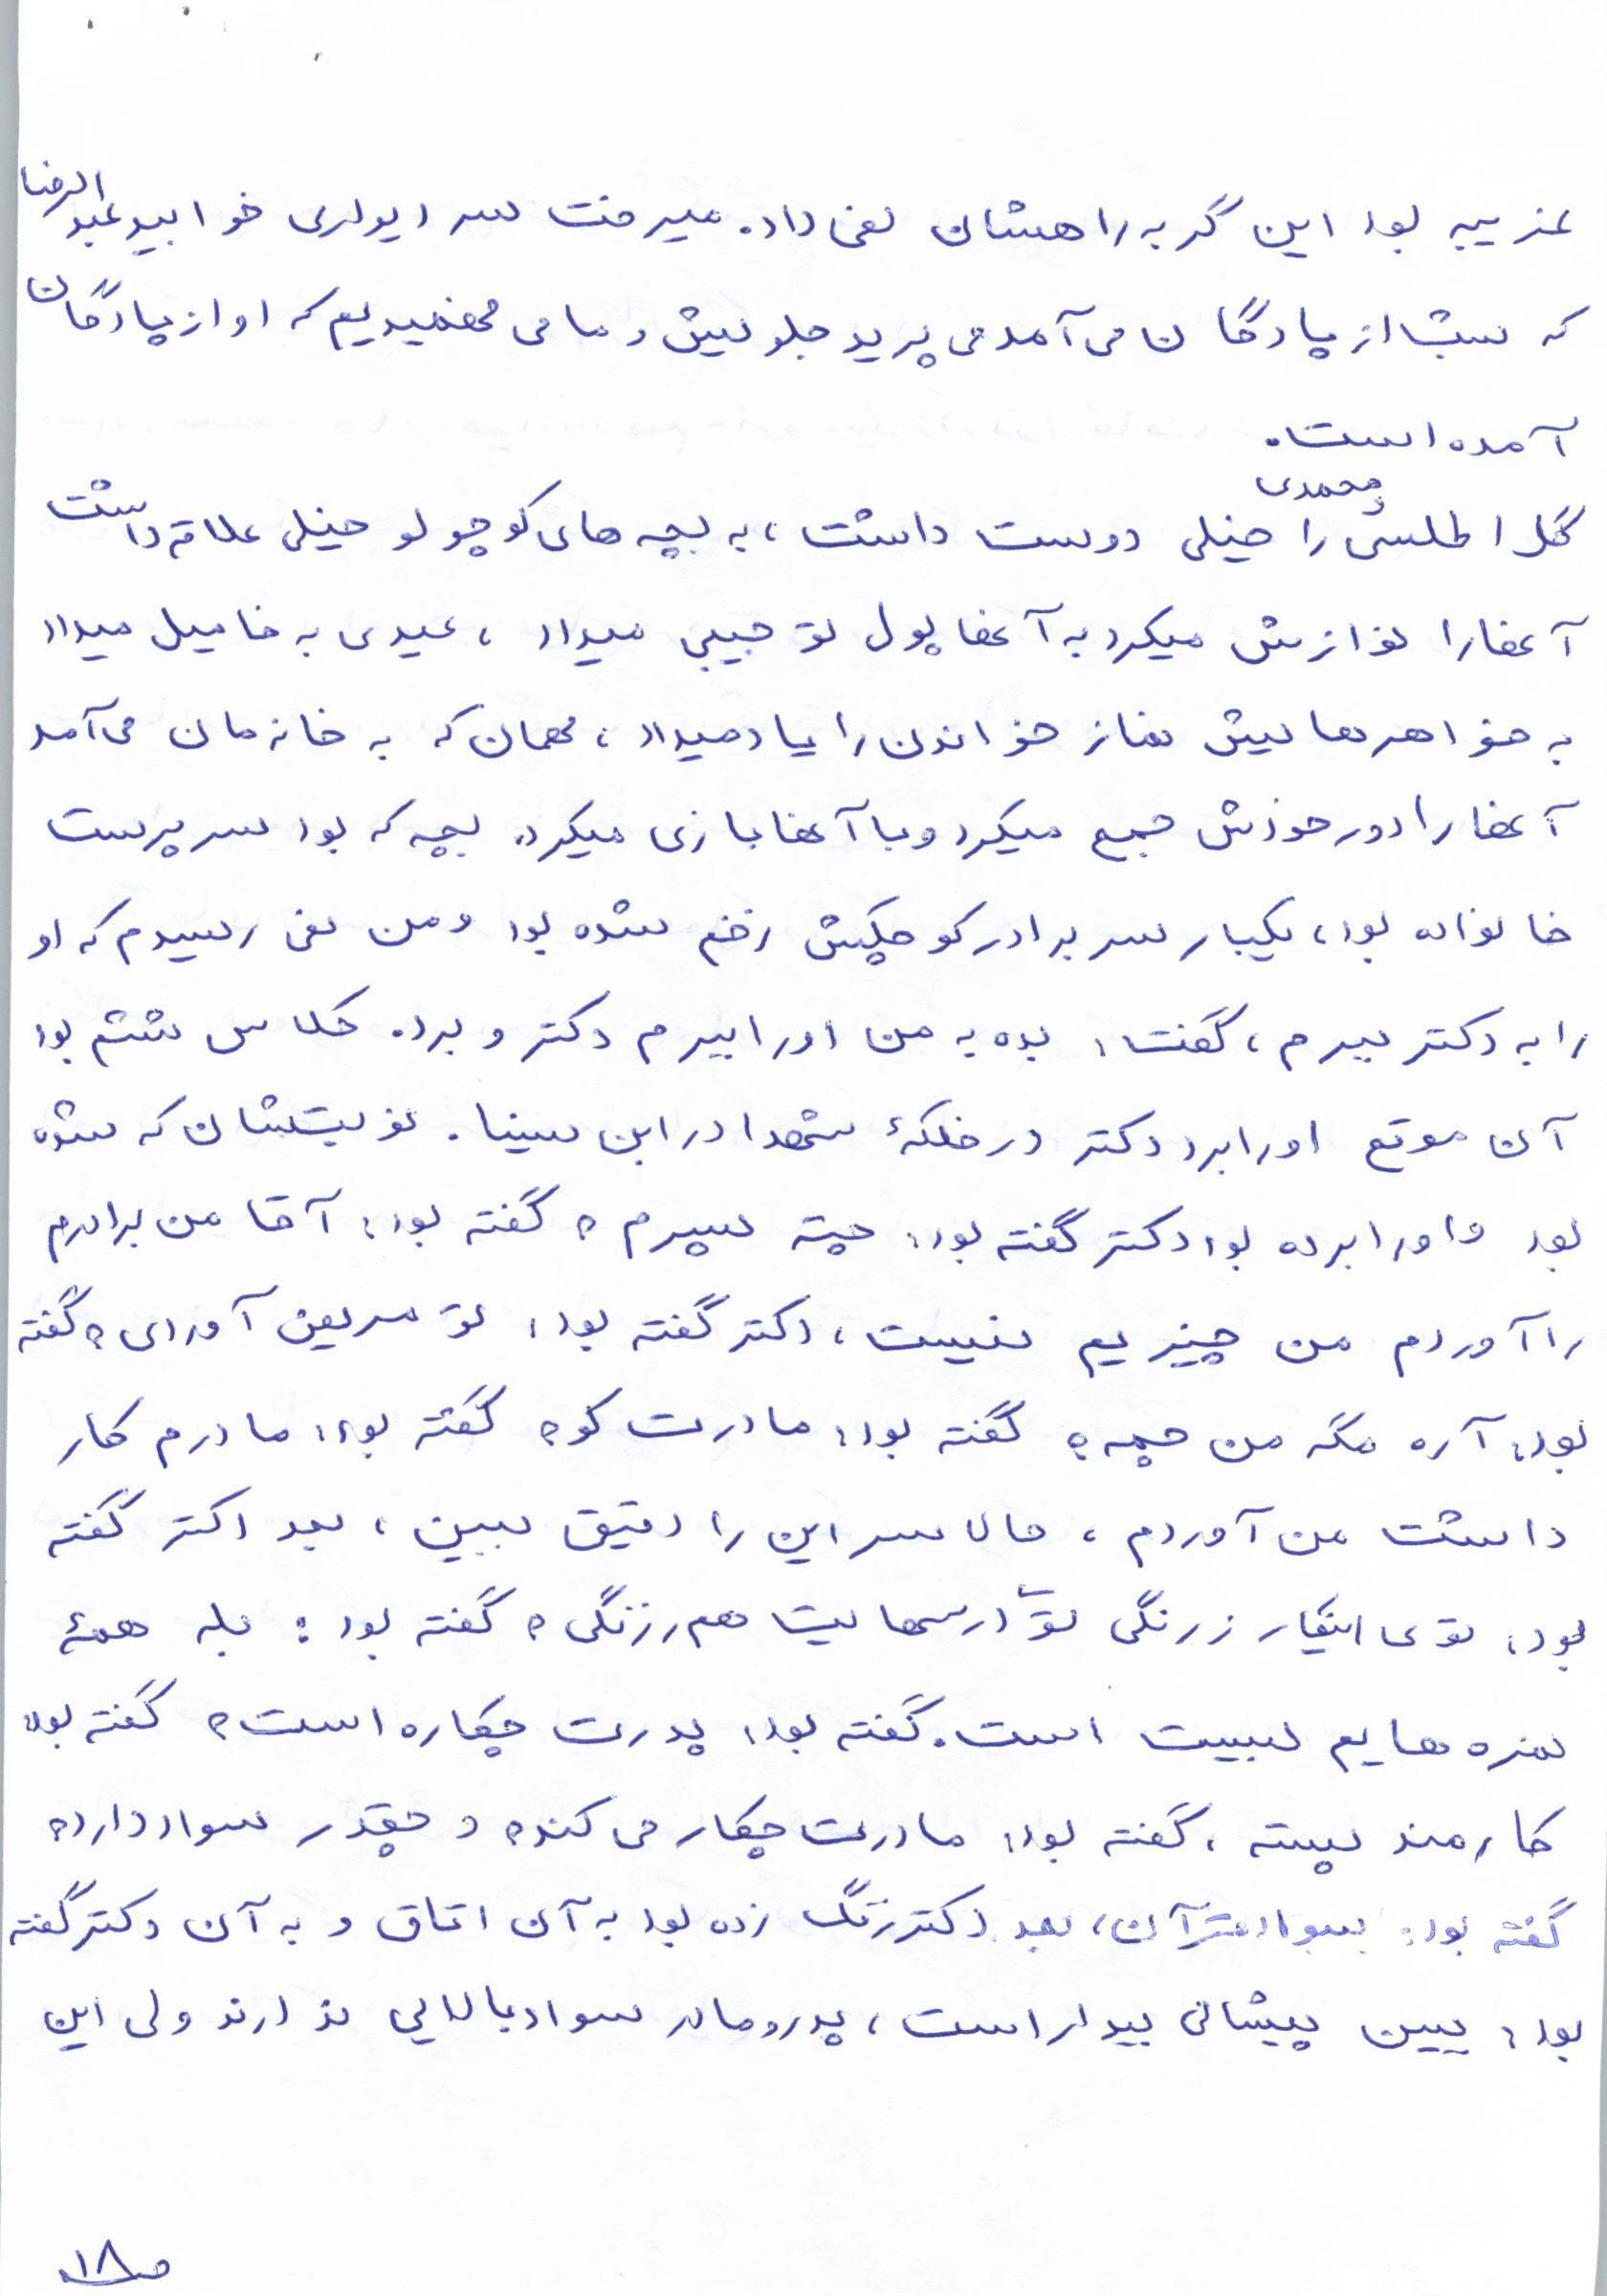 غریبه بود این گربه راهشان نمی داد. میرفت سر دیواری خوابید عبدالرضا
که شب از پادگان می آمد می پرید جلویش و ما می فهمیدیم که او از پادگان
آمده است.
گل اطلسی و محمدی را خیلی دوست داشت، به بچه های کوچولو خیلی علاقه داشت
آنها را نوازش میکرد به آنها پول تو جیبی میداد، عیدی به فامیل میداد
به خواهرهایش نماز خواندن را یاد میداد، مهمان که به خانه مان می آمد
آنها را دور خودش جمع میکرد و با آنها بازی میکرد. بچه که بود سرپرست
خانواده بود، یکبار سر برادر کوچکش زخم شده بود و من نمی رسیدم که او
را به دکتر ببرم، گفت: بده به من او را ببرم دکتر و برد. کلاس ششم بود
آن موقع او را برد دکتر در فلکهٔ شهدا در ابن سینا. نوبتشان که شده
بود و او را برده بود دکتر گفته بود: چیته پسرم؟ گفته بود: آقا من برادرم
را آوردم من چیزیم نیست، دکتر گفته بود: تو مریض آوردی؟ گفته
بود: آره مگه من چمه؟ گفته بود: مادرت کو؟ گفته بود: مادرم کار
داشت من آوردم، حالا سر این را دقیق ببین، بعد دکتر گفته
بود: توی اینکار زرنگی تو درسهایت هم زرنگی؟ گفته بود: بله همهٔ
نمره هایم بیست است. گفته بود: پدرت چکاره است؟ گفته بود:
کارمند پسته، گفته بود: مادرت چکار می کند؟ و چقدر سواد دارد؟
گفته بود: سواد قرآن، بعد دکتر زنگ زده بود به آن اتاق و به آن دکتر گفته
بود: ببین پیشانی بیدار است، پدر و مادر سواد بالایی ندارند ولی این
ص۱۸